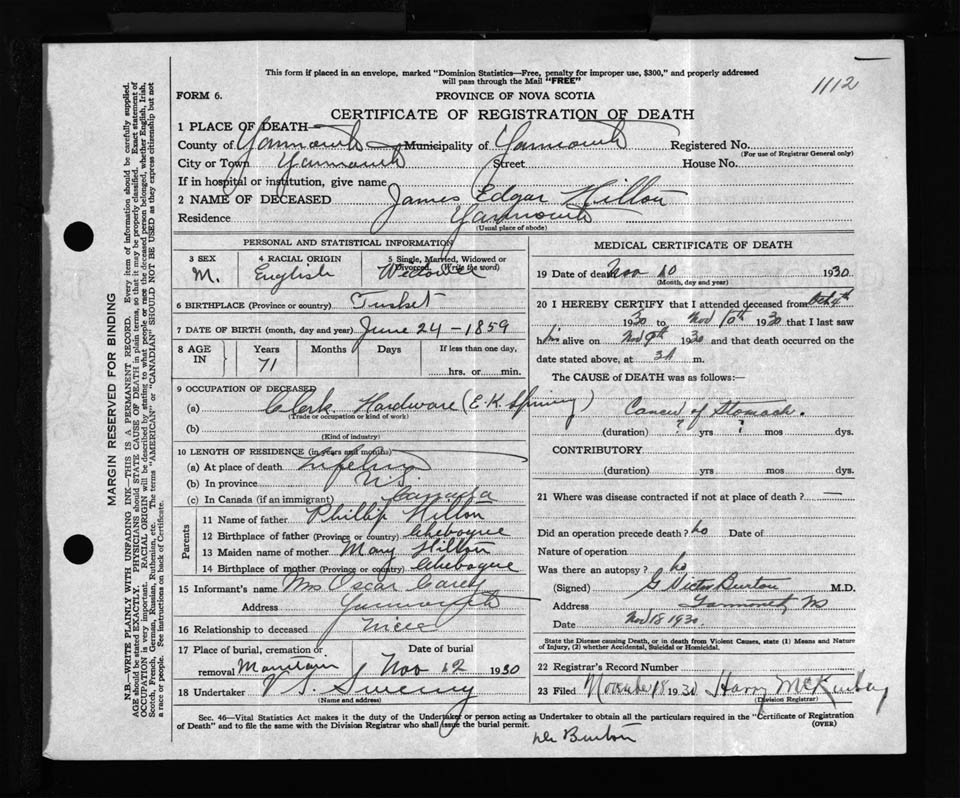 This form if placed in an envelope, marked "Dominion Statistics—Free, penalty for improper use, $300," and properly addressed
will pass through the Mail "FREE"
1112
FORM 6.
PROVINCE OF NOVA SCOTIA
CERTIFICATE OF REGISTRATION OF DEATH
1 PLACE OF DEATH—
County of Yarmouth Municipality of Yarmouth Registered No.
(For use of Registrar General only)
City or Town Yarmouth Street House No.
If in hospital or institution, give name
2 NAME OF DECEASED James Edgar Hilton
Residence Yarmouth
(Usual place of abode)
PERSONAL AND STATISTICAL INFORMATION
3 SEX 4 RACIAL ORIGIN 5 Single, Married, Widowed or
Divorced. (Write the word)
M. English Widower
6 BIRTHPLACE (Province or country) Tusket
7 DATE OF BIRTH (month, day and year) June 24 - 1859
8 AGE IN Years Months Days If less than one day,
71 hrs. or min.
9 OCCUPATION OF DECEASED
(a) Clerk Hardware (E.K. Spinney)
(Trade or occupation or kind of work)
(b)
(Kind of industry)
10 LENGTH OF RESIDENCE (in years and months)
(a) At place of death
(b) In province N.S.
(c) In Canada (if an immigrant) Canada
Parents
11 Name of father Phillip Hilton
12 Birthplace of father (Province or country) Chebogue
13 Maiden name of mother Mary Hilton
14 Birthplace of mother (Province or country) Chebogue
15 Informant's name Mrs Oscar
Address Yarmouth
16 Relationship to deceased Niece
17 Place of burial, cremation or Date of burial
removal Mountain Nov 12 1930
18 Undertaker V S. Sweeny
(Name and address)
MEDICAL CERTIFICATE OF DEATH
19 Date of death Nov 10 1930
(Month, day and year)
20 I HEREBY CERTIFY that I attended deceased from
1930 to Nov 10th 1930 that I last saw
him alive on Nov 9th 1930 and that death occurred on the
date stated above, at m.
The CAUSE of DEATH was as follows:—
Cancer of Stomach.
(duration) ? yrs ? mos dys.
CONTRIBUTORY
(duration) yrs mos dys.
21 Where was disease contracted if not at place of death? —
Did an operation precede death? no Date of
Nature of operation
Was there an autopsy? no
(Signed) G Victor Burton M.D.
Address Yarmouth NS
Date Nov 18 1930.
State the Disease causing Death, or in death from Violent Causes, state (1) Means and Nature
of Injury, (2) whether Accidental, Suicidal or Homicidal.
22 Registrar's Record Number
23 Filed November 18 1930 Harry
(Division Registrar)
Sec. 46—Vital Statistics Act makes it the duty of the Undertaker or person acting as Undertaker to obtain all the particulars required in the "Certificate of Registration
of Death" and to file the same with the Division Registrar who shall issue the burial permit.
(OVER)
Dr Burton
MARGIN RESERVED FOR BINDING
N.B.—WRITE PLAINLY WITH UNFADING INK—THIS IS A PERMANENT RECORD. Every item of information should be carefully supplied.
AGE should be stated EXACTLY. PHYSICIANS should STATE CAUSE OF DEATH in plain terms, so that it may be properly classified. Exact statement of
OCCUPATION is very important. RACIAL ORIGIN will be described by stating to what people or race the deceased person belonged, whether English, Irish,
Scotch, French, German, Russian, Ruthenian, etc. The terms "AMERICAN" or "CANADIAN" SHOULD NOT BE USED as they express citizenship but not
a race or people. See instructions on back of Certificate.